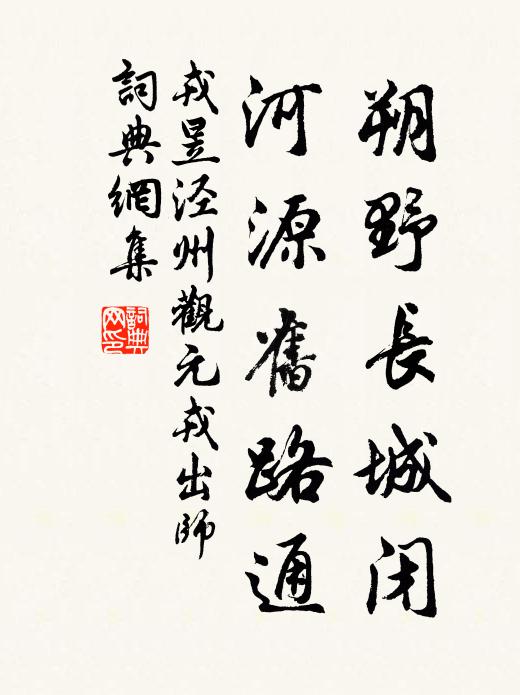 朔野長城閉
河源舊路通
戎昱涇州觀元戎出師
詞典網集
詞典
网印